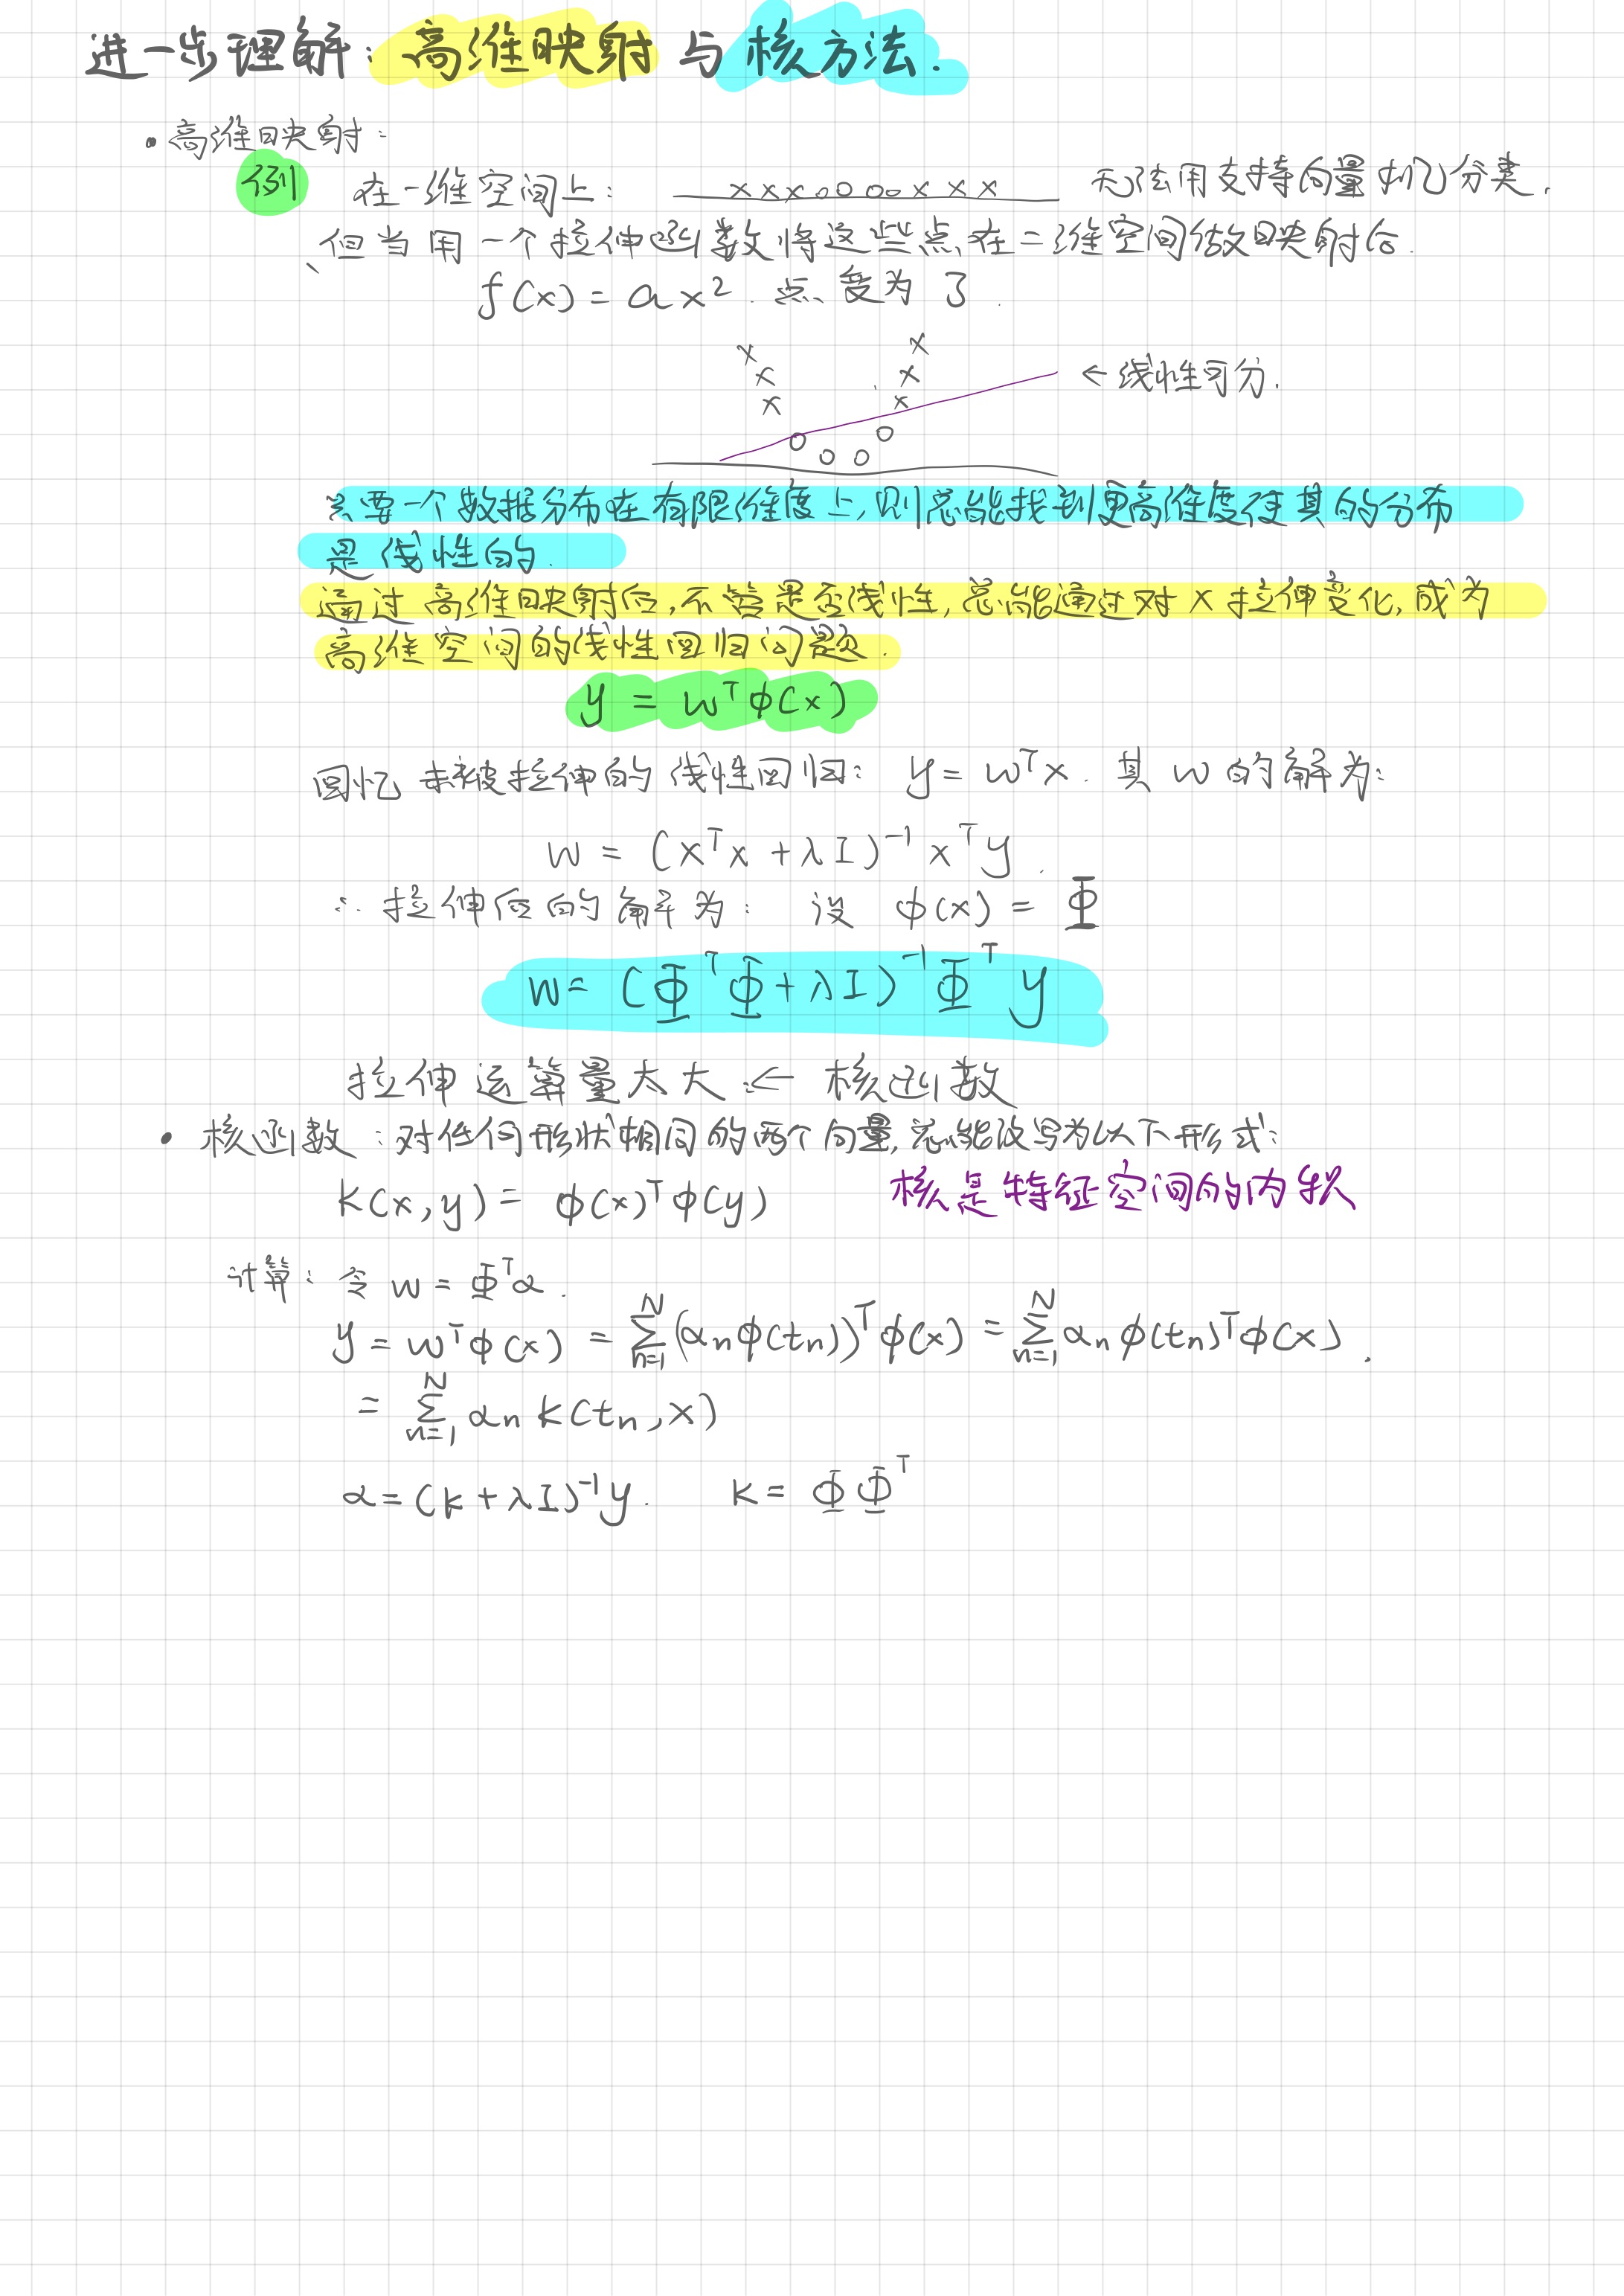 进一步理解：高维映射与核方法.
• 高维映射：
例 在一维空间上： xxx.oooo xxx 无法用支持向量机分类.
但当用一个拉伸函数将这些点在二维空间做映射后.
f(x) = ax². 点变为了.
← 线性可分.
只要一个数据分布在有限维度上,则总能找到更高维度使其的分布
是线性的.
通过高维映射后,不管是否线性,总能通过对x拉伸变化,成为
高维空间的线性回归问题.
y = wᵀϕ(x)
回忆未被拉伸的线性回归： y = wᵀx. 其w的解为：
w = (xᵀx + λI)⁻¹xᵀy.
∴ 拉伸后的解为： 设 ϕ(x) = Φ
w = (ΦᵀΦ + λI)⁻¹Φᵀy
拉伸运算量太大 ← 核函数
• 核函数：对任何形状相同的两个向量,总能改写为以下形式：
k(x,y) = ϕ(x)ᵀϕ(y) 核是特征空间的内积
计算：令 w = Φᵀα.
y = wᵀϕ(x) = Σₙ₌₁ᴺ(αₙϕ(tₙ))ᵀϕ(x) = Σₙ₌₁ᴺ αₙϕ(tₙ)ᵀϕ(x).
= Σₙ₌₁ᴺ αₙk(tₙ,x)
α = (k + λI)⁻¹y. K = ΦΦᵀ